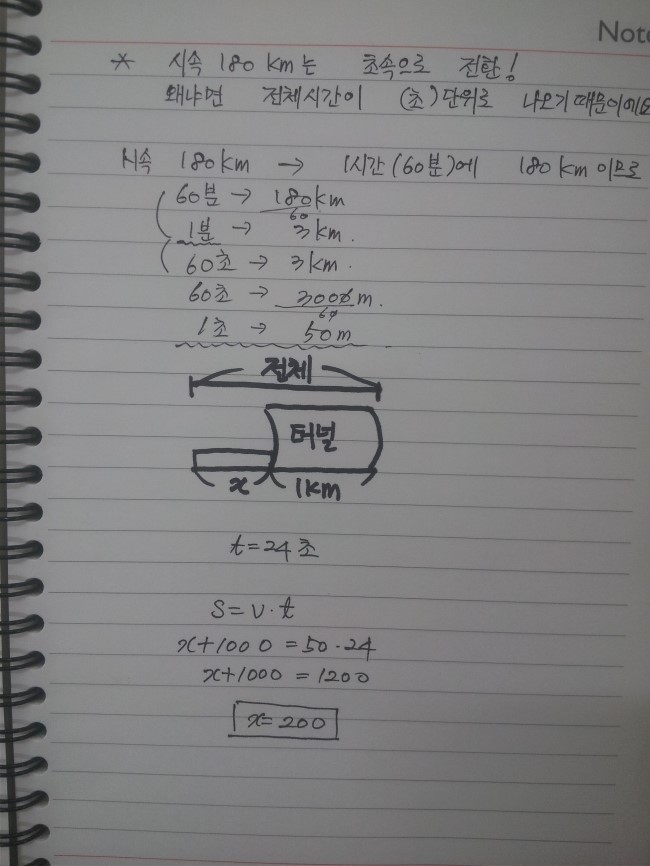 Note
* 시속 180 km는 초속으로 전환!
왜냐면 전체시간이 (초)단위로 나오기때문이에요
시속 180km → 1시간(60분)에 180km 이므로
60분 → 180km
60
1분 → 3km.
60초 → 3km.
60초 → 3000m.
60
1초 → 50m
전체
터널
x 1km
t=24초
S=v·t
x+1000=50·24
x+1000=1200
x=200